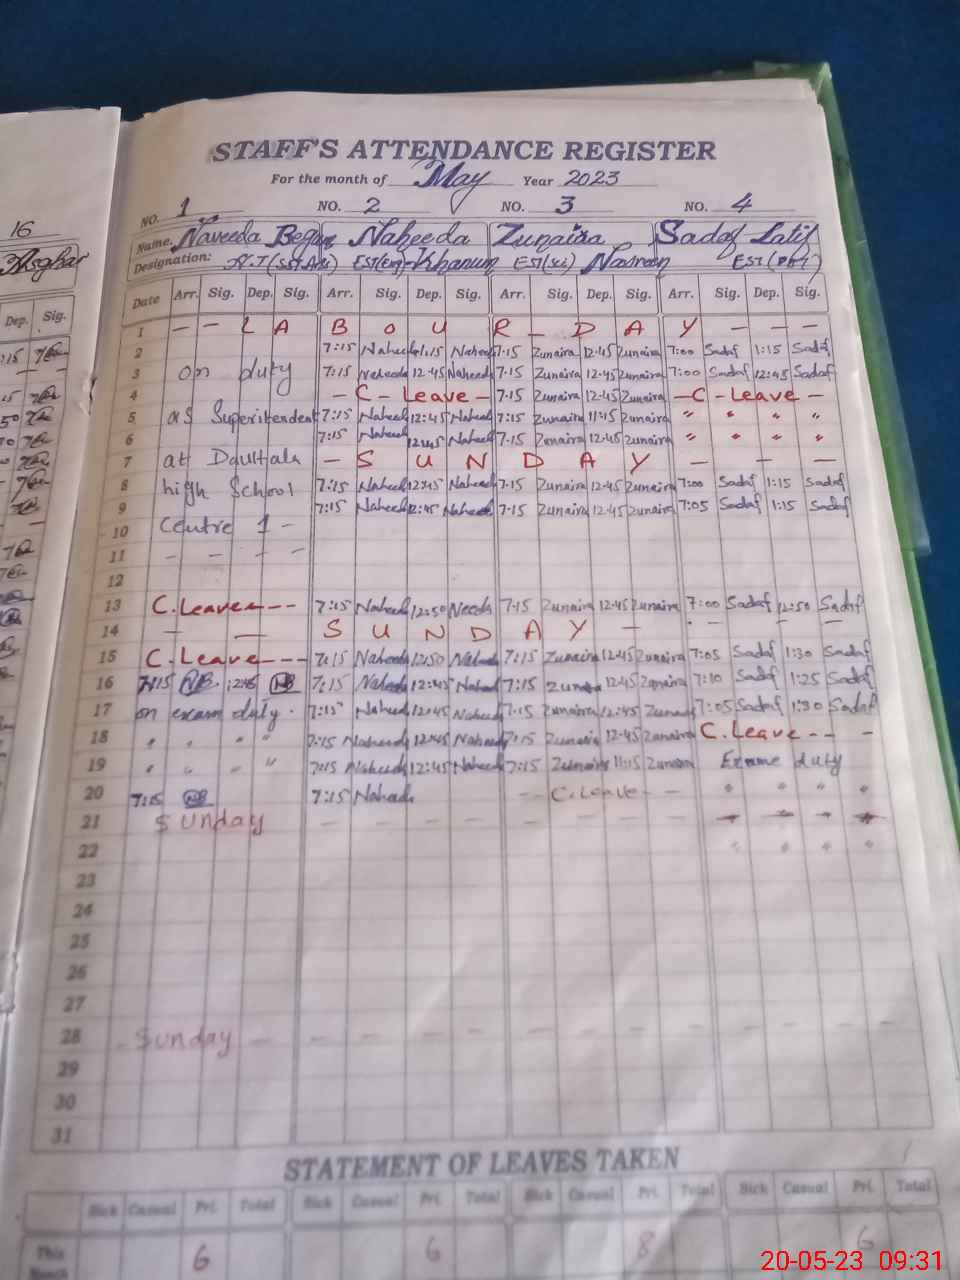 STAFF'S ATTENDANCE REGISTER
For the month of May Year 2023
16
NO. 1 NO. 2 NO. 3 NO. 4
Asghar
Name. Naveeda Begum Naheeda Zunaira Sadaf Latif
Designation: EST(Eng) Khanum EST(Sci) Nasreen EST(
Dep. Sig. Date Arr. Sig. Dep. Sig. Arr. Sig. Dep. Sig. Arr. Sig. Dep. Sig. Arr. Sig. Dep. Sig.
1 - - L A B O U R - D A Y - - -
2 7:15 Naheed 1:15 Naheed 7:15 Zunaira 12:45 Zunaira 7:00 Sadaf 1:15 Sadaf
3 on duty 7:15 Naheeda 12:45 Naheeda 7:15 Zunaira 12:45 Zunaira 7:00 Sadaf 12:45 Sadaf
4 - C - Leave - 7:15 Zunaira 12:45 Zunaira - C - Leave -
5 as Superitendent 7:15 Naheed 12:45 Naheed 7:15 Zunaira 11:45 Zunaira " " " "
6 7:15 Naheed 12:45 Naheed 7:15 Zunaira 12:45 Zunaira " " " "
7 at Daultala - S U N D A Y - - -
8 high School 7:15 Naheed 12:45 Naheed 7:15 Zunaira 12:45 Zunaira 7:00 Sadaf 1:15 Sadaf
9 7:15 Naheed 12:45 Naheed 7:15 Zunaira 12:45 Zunaira 7:05 Sadaf 1:15 Sadaf
10 Centre 1 -
11 - - - -
12
13 C.Leave - - - 7:15 Naheed 12:50 Needa 7:15 Zunaira 12:45 Zunaira 7:00 Sadaf 12:50 Sadaf
14 - - S U N D A Y - - - - -
15 C.Leave - - - 7:15 Naheeda 12:50 Naheed 7:15 Zunaira 12:45 Zunaira 7:05 Sadaf 1:30 Sadaf
16 7:15 NB 12:45 NB 7:15 Naheed 12:45 Naheed 7:15 Zunaira 12:45 Zunaira 7:10 Sadaf 1:25 Sadaf
17 on exam duty. 7:15 Naheed 12:45 Naheed 7:15 Zunaira 12:45 Zunaira 7:05 Sadaf 1:30 Sadaf
18 " " " " 7:15 Naheeda 12:45 Naheed 7:15 Zunaira 12:45 Zunaira C.Leave - - -
19 " " " " 7:15 Naheeda 12:45 Naheed 7:15 Zunaira 11:15 Zunaira Exame duty
20 7:15 NB 7:15 Naheed - - C.Leave - - " " " "
21 Sunday - - - - - - - -
22 " " " "
23
24
25
26
27
28 - Sunday - - - - - - - - - - - - -
29
30
31
STATEMENT OF LEAVES TAKEN
Sick Casual Pri. Total Sick Casual Pri. Total Sick Casual Pri. Total Sick Casual Pri. Total
This Month 6 6 8 6
20-05-23 09:31